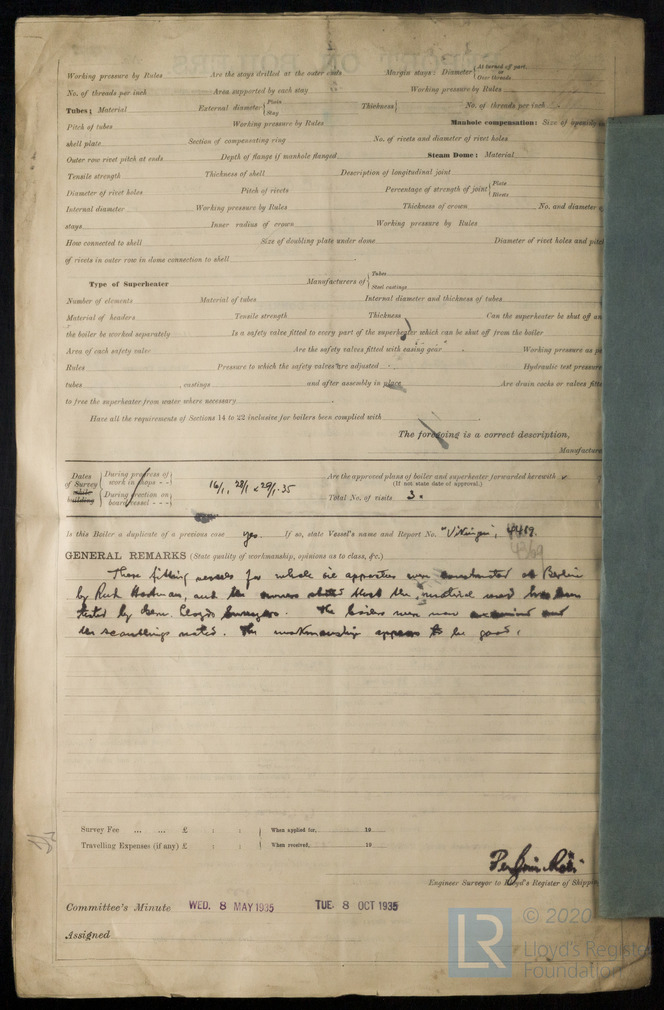 Working pressure by Rules Are the stays drilled at the outer ends Margin stays: Diameter { At turned off part, or Over threads
No. of threads per inch Area supported by each stay Working pressure by Rules
Tubes; Material External diameter { Plate Stay Thickness { No. of threads per inch
Pitch of tubes Working pressure by Rules Manhole compensation: Size of opening in
shell plate Section of compensating ring No. of rivets and diameter of rivet holes
Outer row rivet pitch at ends Depth of flange if manhole flanged Steam Dome: Material
Tensile strength Thickness of shell Description of longitudinal joint
Diameter of rivet holes Pitch of rivets Percentage of strength of joint { Plate Rivets
Internal diameter Working pressure by Rules Thickness of crown No. and diameter of
stays Inner radius of crown Working pressure by Rules
How connected to shell Size of doubling plate under dome Diameter of rivet holes and pitch
of rivets in outer row in dome connection to shell
Type of Superheater Manufacturers of { Tubes Steel castings
Number of elements Material of tubes Internal diameter and thickness of tubes
Material of headers Tensile strength Thickness Can the superheater be shut off an
the boiler be worked separately Is a safety valve fitted to every part of the superheater which can be shut off from the boiler
Area of each safety valve Are the safety valves fitted with easing gear Working pressure as pe
Rules Pressure to which the safety valves are adjusted Hydraulic test pressure
tubes , castings and after assembly in place Are drain cocks or valves fitte
to free the superheater from water where necessary
Have all the requirements of Sections 14 to 22 inclusive for boilers been complied with
The foregoing is a correct description,
Manufactur
Dates of Survey while building { During progress of work in shops - - During erection on board vessel - - - 16/1, 28/1 & 29/1-35 Are the approved plans of boiler and superheater forwarded herewith
(If not state date of approval.)
Total No. of visits 3.
Is this Boiler a duplicate of a previous case yes. If so, state Vessel's name and Report No. "Vikingen", 4419.
4369
GENERAL REMARKS (State quality of workmanship, opinions as to class, &c.)
These fitting vessels for whale oil apparatus were constructed at Berlin
by and the owners stated that the material used has been
tested by Germ. Lloyds Surveyors. The boilers were now examined and
the scantlings noted. The workmanship appears to be good.
Survey Fee ... ... £ : : When applied for, 19
Travelling Expenses (if any) £ : : When received, 19
Engineer Surveyor to Lloyd's Register of Shipping
Committee's Minute WED. 8 MAY 1935 TUE. 8 OCT 1935
Assigned
LR © 2020
Lloyd's Register
Foundation